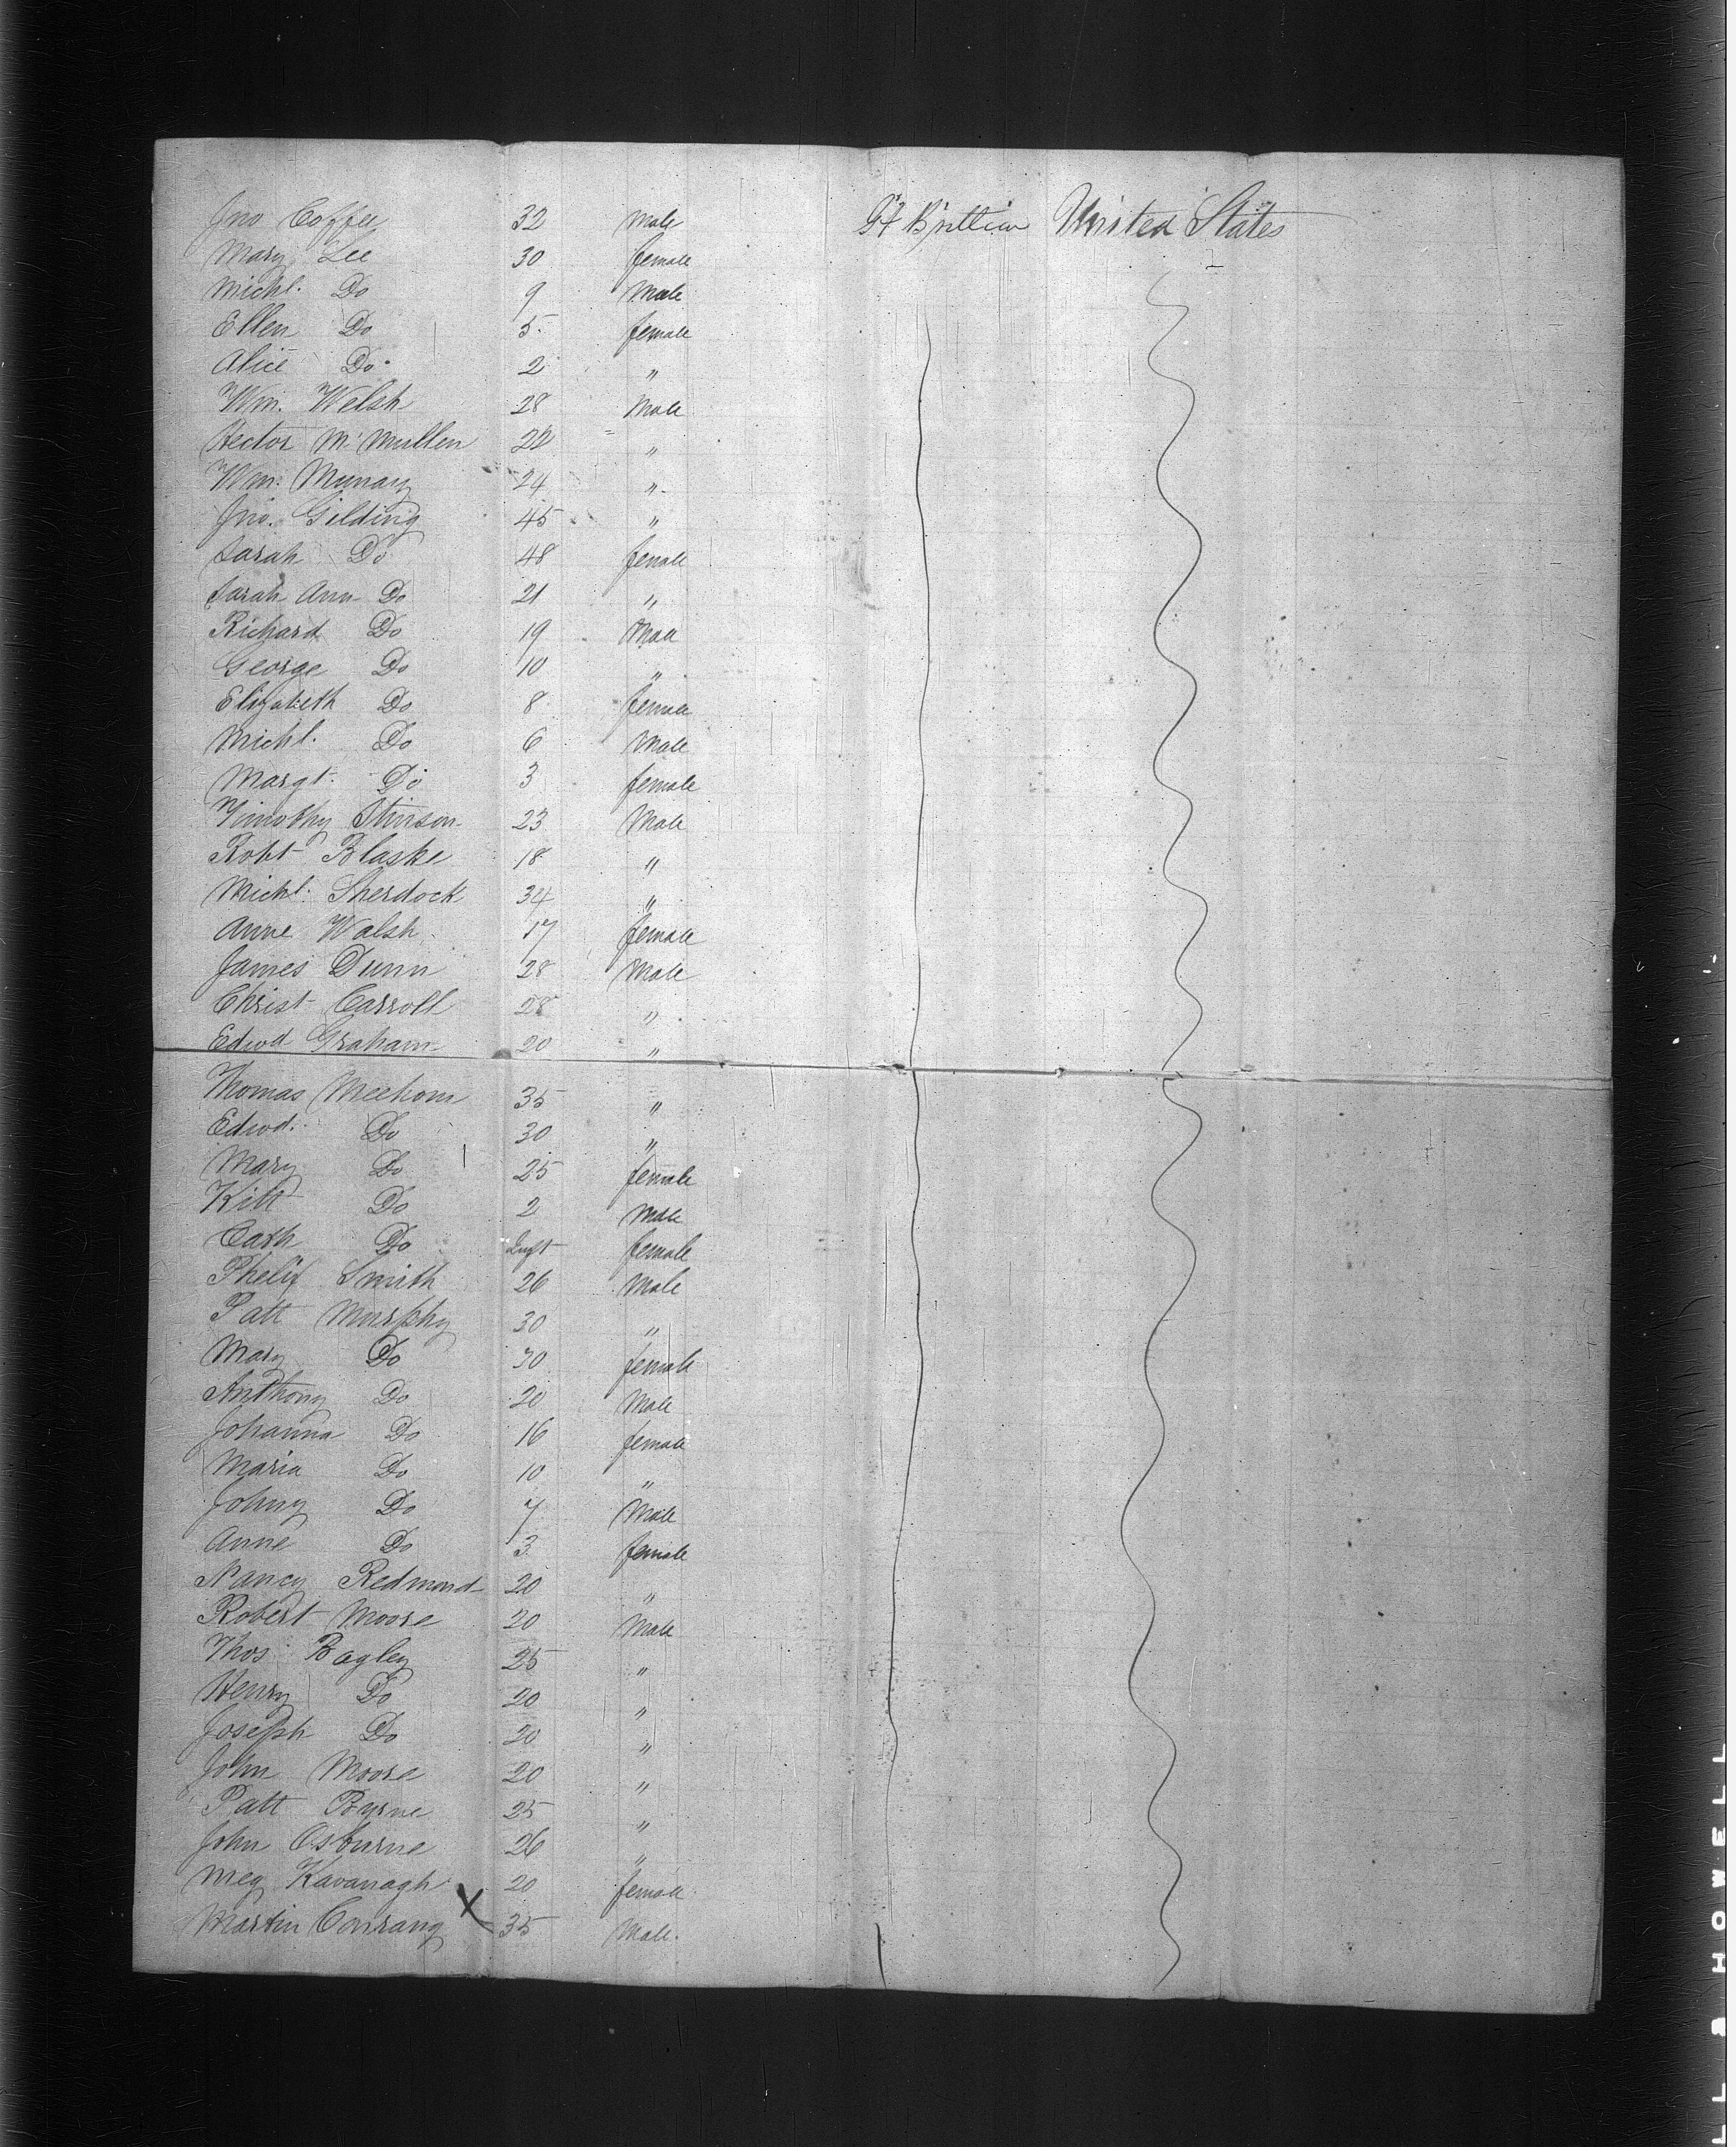 Jno Coffee 32 Male Gt Brittian United States
Mary Lee 30 female
Michl. Do 9 Male
Ellen Do 5 female
Alice Do 2 "
Wm. Welsh 28 Male
Hector McMullen 22 "
Wm. Murray 24 "
Jno. Gilding 45 "
Sarah Do 48 female
Sarah Ann Do 21 "
Richard Do 19 Male
George Do 10 "
Elizabeth Do 8 female
Michl. Do 6 Male
Margt. Do 3 female
Timothy Stinson 23 Male
Robt Blaske 18 "
Michl. Sherdock 34 "
Anne Walsh 17 female
James Dunn 28 Male
Christ Carroll 28 "
Edwd Graham 20 "
Thomas Meehom 35 "
Edwd. Do 30 "
Mary Do 25 female
Kitt Do 2 Male
Cath Do Inft female
Phelif Smith 26 Male
Patt Murphy 30 "
Mary Do 30 female
Anthony Do 20 Male
Johanna Do 16 female
Maria Do 10 "
Johny Do 7 Male
Anne Do 3 female
Nancy Redmond 20 "
Robert Moore 20 Male
Thos Bagley 25 "
Henry Do 20 "
Joseph Do 20 "
John Moore 20 "
Patt Byrne 25 "
John Osburne 26 "
Meg Kavanagh 20 female
Martin X 35 Male.
HOWELL